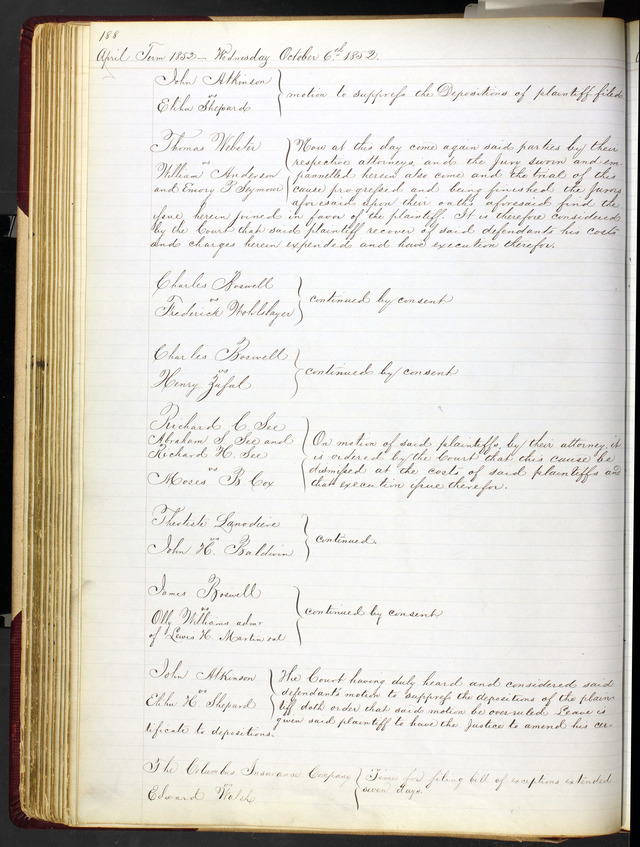 188
April Term 1852 - Wednesday October 6th 1852.
John Atkinson
vs
Elihu Shepard
motion to suppress the Depositions of plaintiff filed.
Thomas Webster
vs
William Anderson
and Emory P. Seymour
Now at this day come again said parties by their
respective attorneys, and the Jury sworn and em-
pannelled herein also come and the trial of this
cause progressed and being finished the Jurors
aforesaid upon their oaths aforesaid find the
issue herein joined in favor of the plaintiff. It is therefore considered
by the Court that said plaintiff recover of said defendants his costs
and charges herein expended and have execution therefor.
Charles Boswell
vs
Frederick Wohlslayer
continued by consent
Charles Boswell
vs
Henry Zufal
continued by consent
Richard C. See
Abraham S. See and
Richard H. See
vs
Moses B Cox
On motion of said plaintiffs, by their attorney, it
is ordered by the Court that this cause be
dismissed at the costs of said plaintiffs and
that execution issue therefor.
Theotiste
vs
John H. Baldwin
continued.
James Boswell
vs
Olly Williams admr
of Lewis H. Martin
continued by consent
John Atkinson
vs
Elihu H. Shepard
The Court having duly heard and considered said
defendants motion to suppress the depositions of the plain-
tiff doth order that said motion be overruled. Leave is
given said plaintiff to have the Justice to amend his cer-
tificate to depositions.
The Columbus Insurance Company
vs
Edward Walsh
Time for filing bill of exceptions extended
seven days.